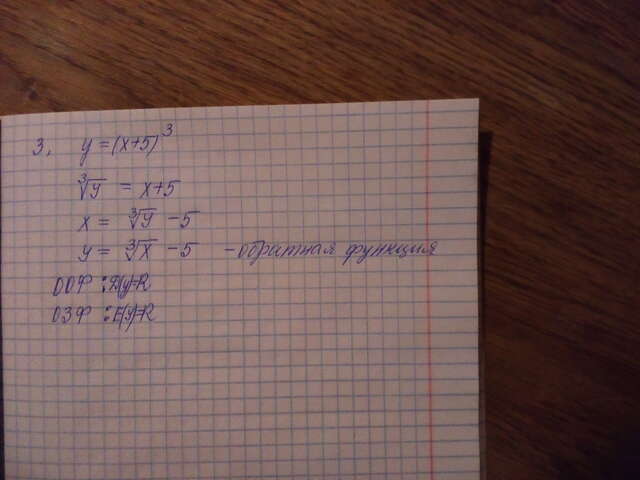 3, y = (x+5)³
∛y = x+5
x = ∛y - 5
y = ∛x - 5 - обратная функция
ООФ : D(y)=R
ОЗФ : E(y)=R